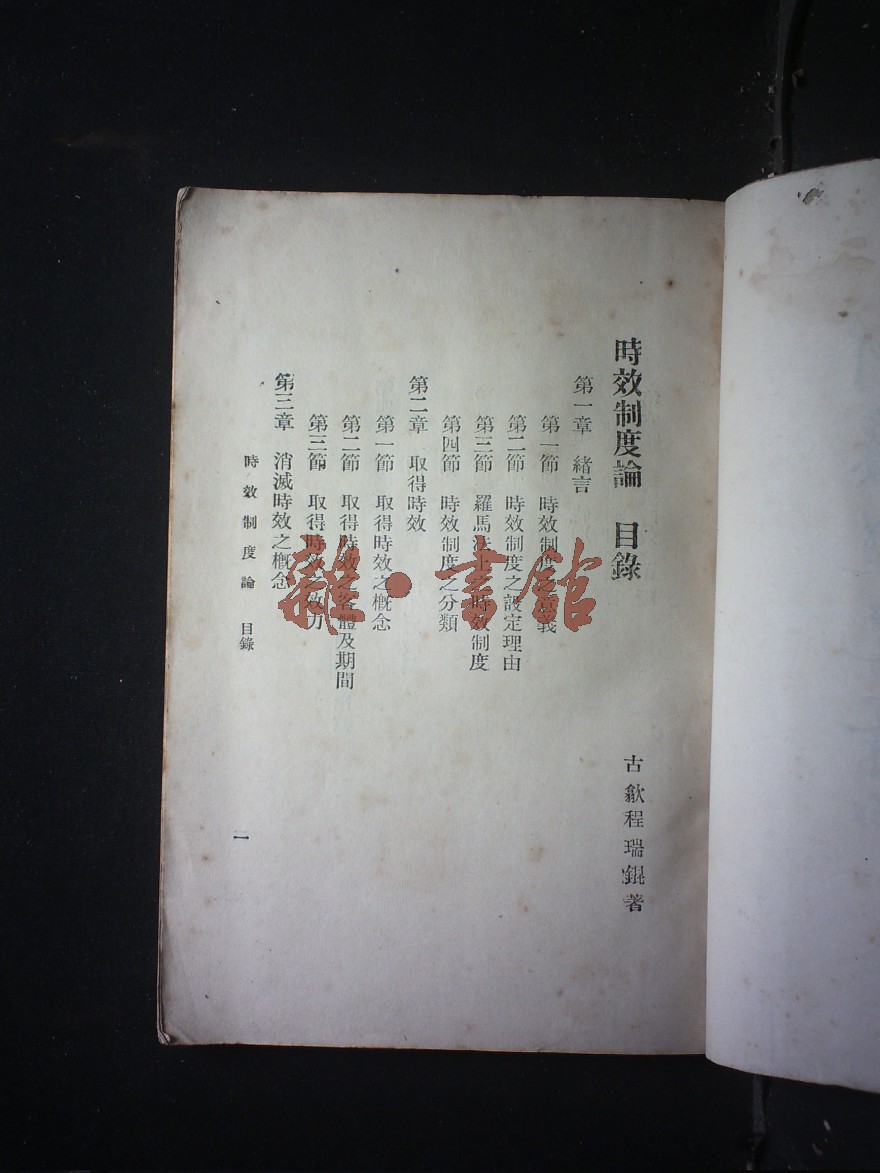 時效制度論　目錄
古歙程瑞錕著
第一章　緒言
第一節　時效制度之意義
第二節　時效制度之設定理由
第三節　羅馬法上之時效制度
第四節　時效制度之分類
第二章　取得時效
第一節　取得時效之概念
第二節　取得時效之客體及期間
第三節　取得時效之效力
第三章　消滅時效之概念
時效制度論　目錄
一
雜·書館